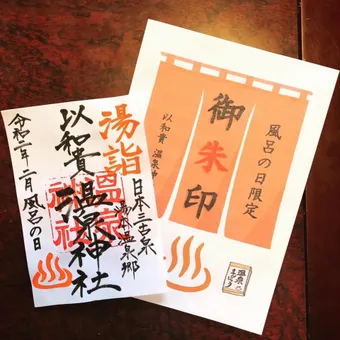 湯詣
日本三古泉
湯本温泉郷
以和貴 温泉神社
令和二年二月 風呂の日
温泉
神社
風呂の日限定
御朱印
以和貴 温泉神